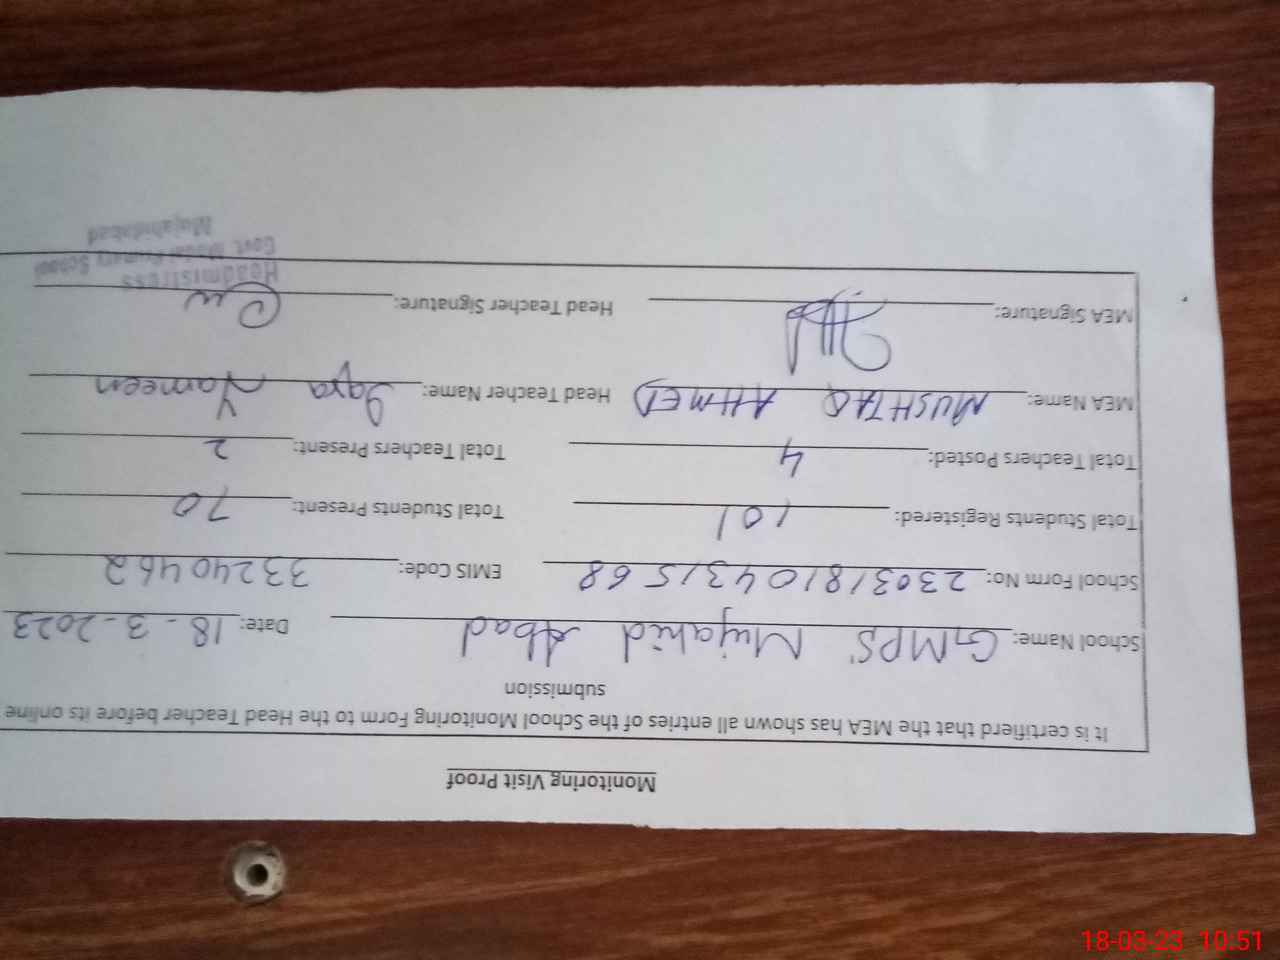 Monitoring Visit Proof
It is certifierd that the MEA has shown all entries of the School Monitoring Form to the Head Teacher before its online
submission
School Name: GMPS Mujahid Abad Date: 18-3-2023
School Form No: 23031810431568 EMIS Code: 33240462
Total Students Registered: 101 Total Students Present: 70
Total Teachers Posted: 4 Total Teachers Present: 2
MEA Name: MUSHTAQ AHMED Head Teacher Name: Iqra Yameen
MEA Signature: Head Teacher Signature:
Headmistress
Govt. Model Primary School
Mujahidabad
18-03-23 10:51